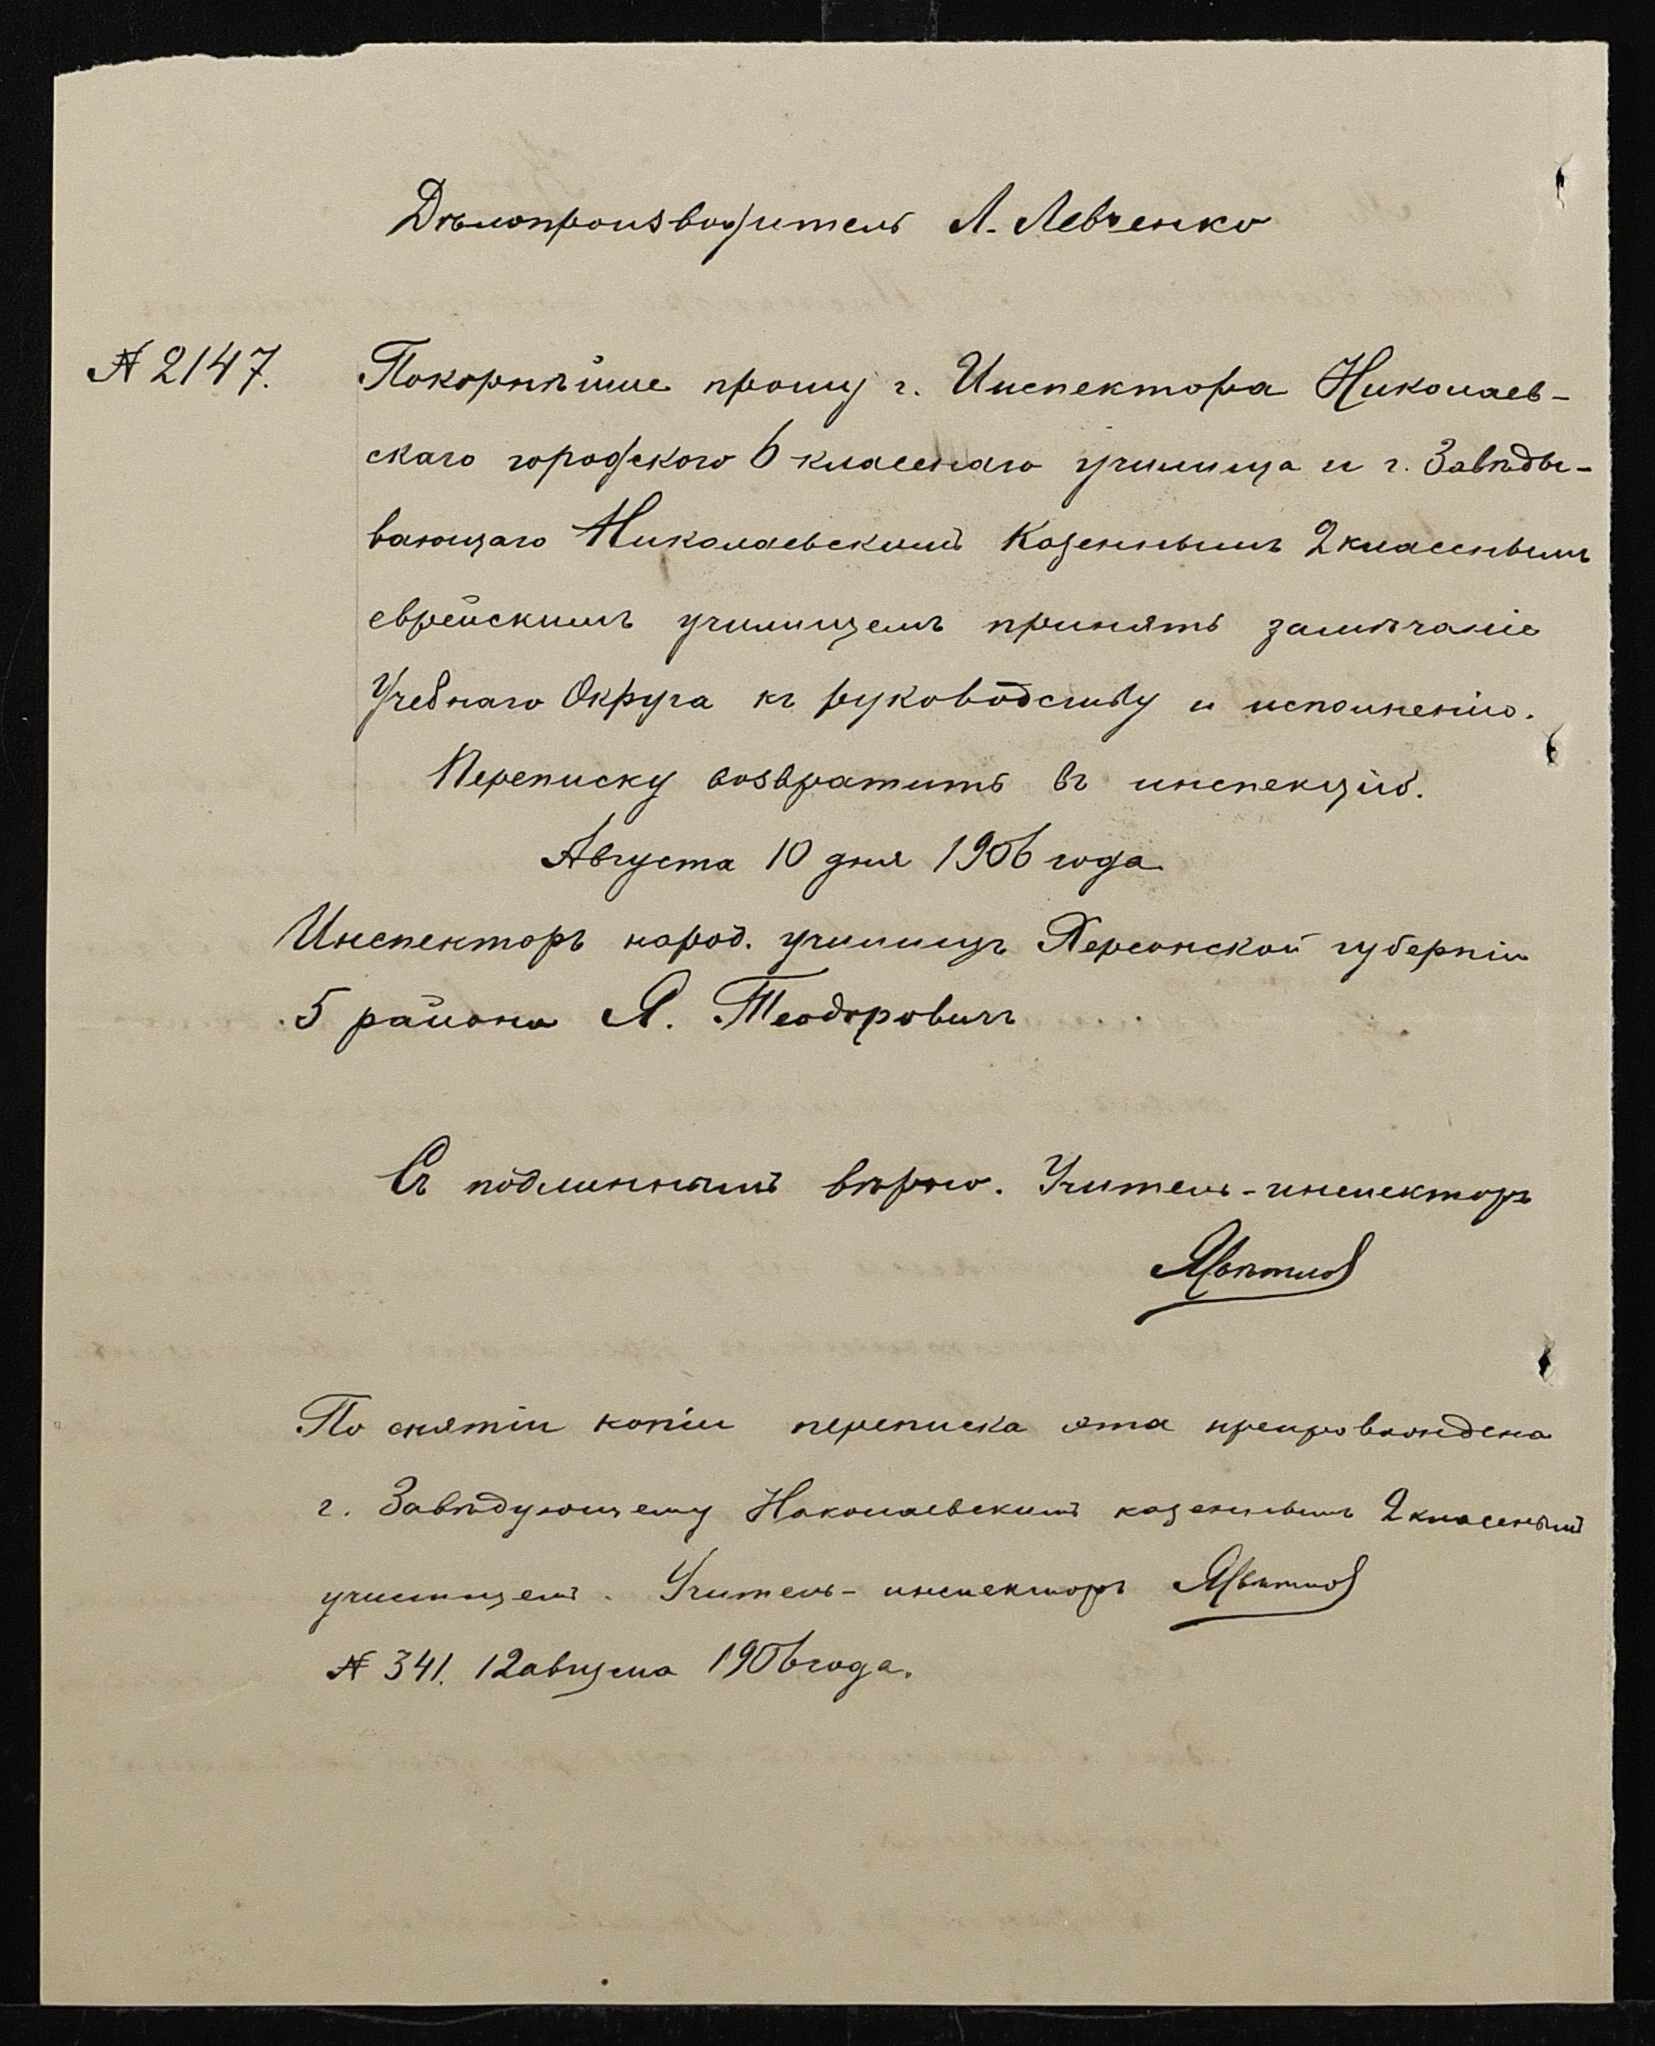 Дѣлопроизводитель Л. Левченко
№ 2147. Покорнѣйше прошу г. Инспектора Николаев-
скаго городского 6 класснаго училища и г. Завѣды-
вающаго Николаевскимъ Казеннымъ 2 класснымъ
еврейскимъ училищемъ принять замѣчаніе
Учебнаго Округа къ руководству и исполненію.
Переписку возвратить въ инспекцію.
Августа 10 дня 1906 года
Инспекторъ народ. училищъ Херсонской губерніи
5 района Я. Теодоровичъ
Съ подлиннымъ вѣрно. Учитель-инспекторъ
По снятіи копіи переписка эта препровождена
г. Завѣдующему Николаевскимъ казеннымъ 2 класснымъ
училищемъ. Учитель-инспекторъ
№ 341. 12 августа 1906 года.